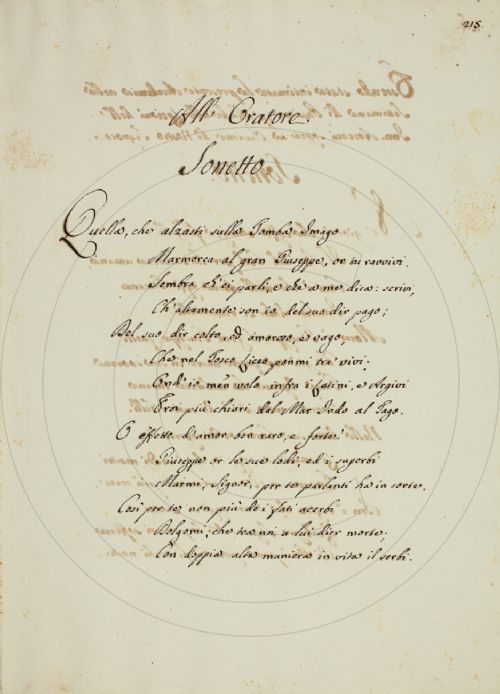 215.
All' Oratore
Sonetto
Quella, che alzasti sulla Tomba Imago
Marmorea al gran Giuseppe, or tu ravvivi.
Sembra, ch' ei parli, e che a me dica: scrivi,
Ch' altamente son io del suo dir pago;
Del suo dir colto, ed amoroso, e vago,
Che nel Tosco Liceo ponmi tra' vivi;
Ond' io men volo infra i Latini, e Argivi
Eroi più chiari dal Mar Indo al Tago.
O effetto d'amor ben raro, e forte!
Giuseppe or le sue lodi, ed i superbi
Marmi, Signor, per te parlanti ha in sorte.
Così per te non più de i fati acerbi
Dolgomi, che tra noi a lui dier morte;
Con doppia alta maniera in vita il serbi.